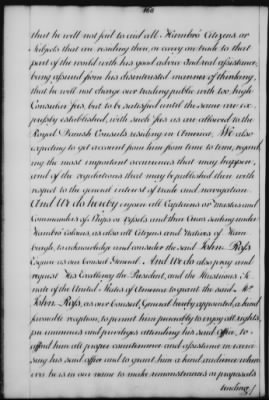 160
that he will not fail to aid all Hambro' Citizens or
Subjects that are residing there, or carry on trade to that
part of the world with his good advice and real assistance,
being assured from his disinterested manner of thinking,
that he will not charge our trading public with too high
Consular fees, but to be satisfied until the same are ex-
pressly established, with such fees as are allowed to the
Royal Danish Consuls residing in America, We also
expecting to get account from him from time to time, regard-
ing the most important occurrences that may happen,
and of the regulations that may be published there with
respect to the general interest of trade and navigation.
And We do hereby enjoin all Captains or Masters and
Commanders of Ships or Vessels and their Crews sailing under
Hambro' Colours, as also all Citizens and Natives of Ham-
burgh, to acknowledge and consider the said John Ross
Esquire as our Consul General. And We do also pray and
request His Excellency the President, and the Illustrious Se-
nate of the United States of America to grant the said Mr
John Ross, as our Consul General hereby appointed, a kind
favorable reception, to permit him peaceably to enjoy all rights,
pre-eminences and privileges attending his said office, to
afford him all proper countenance and assistance in exerci-
sing his said office and to grant him a kind audience when
ever he is in our name to make remonstrances or proposals
tending